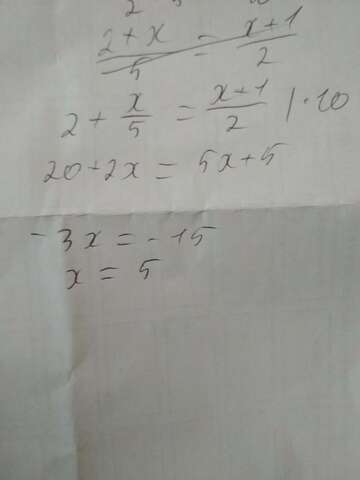 2
2+x/5 = x+1/2
2 + x/5 = x+1/2 |·10
20+2x = 5x+5
-3x = -15
x = 5